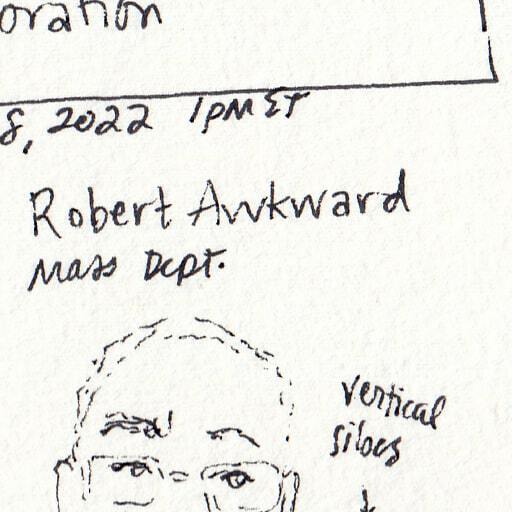 oration
8, 2022 1PM ET
Robert Awkward
Mass Dept.
vertical
silos